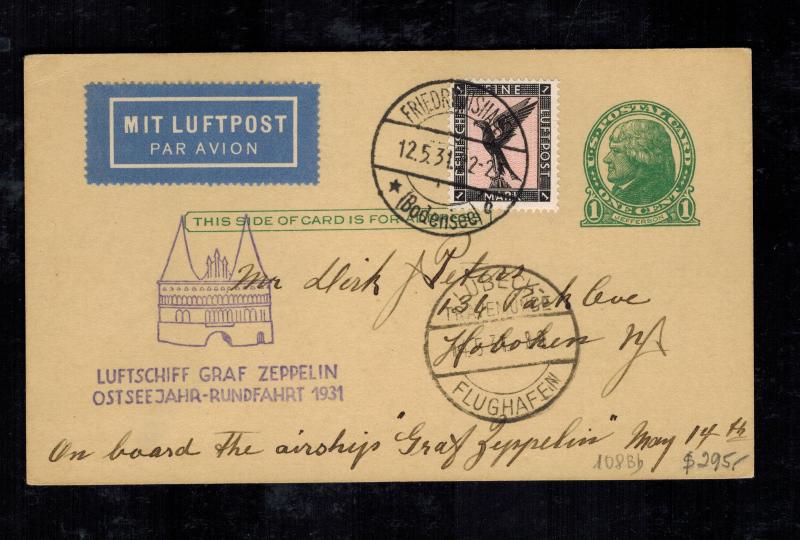 MIT LUFTPOST
PAR AVION
FRIEDRICHSHAFEN
12.5.31
(Bodensee)
EINE
DEUTSCHE
LUFTPOST
1 MARK 1
U.S. POSTAL CARD
ONE CENT
1 JEFFERSON 1
THIS SIDE OF CARD IS FOR
Mr Dirk J Peters
134 Park Ave
Hoboken NJ
LÜBECK-
TRAVEMÜNDE
FLUGHAFEN
LUFTSCHIFF GRAF ZEPPELIN
OSTSEEJAHR-RUNDFAHRT 1931
On board the airship "Graf Zeppelin" May 14th
108Bb
$295/